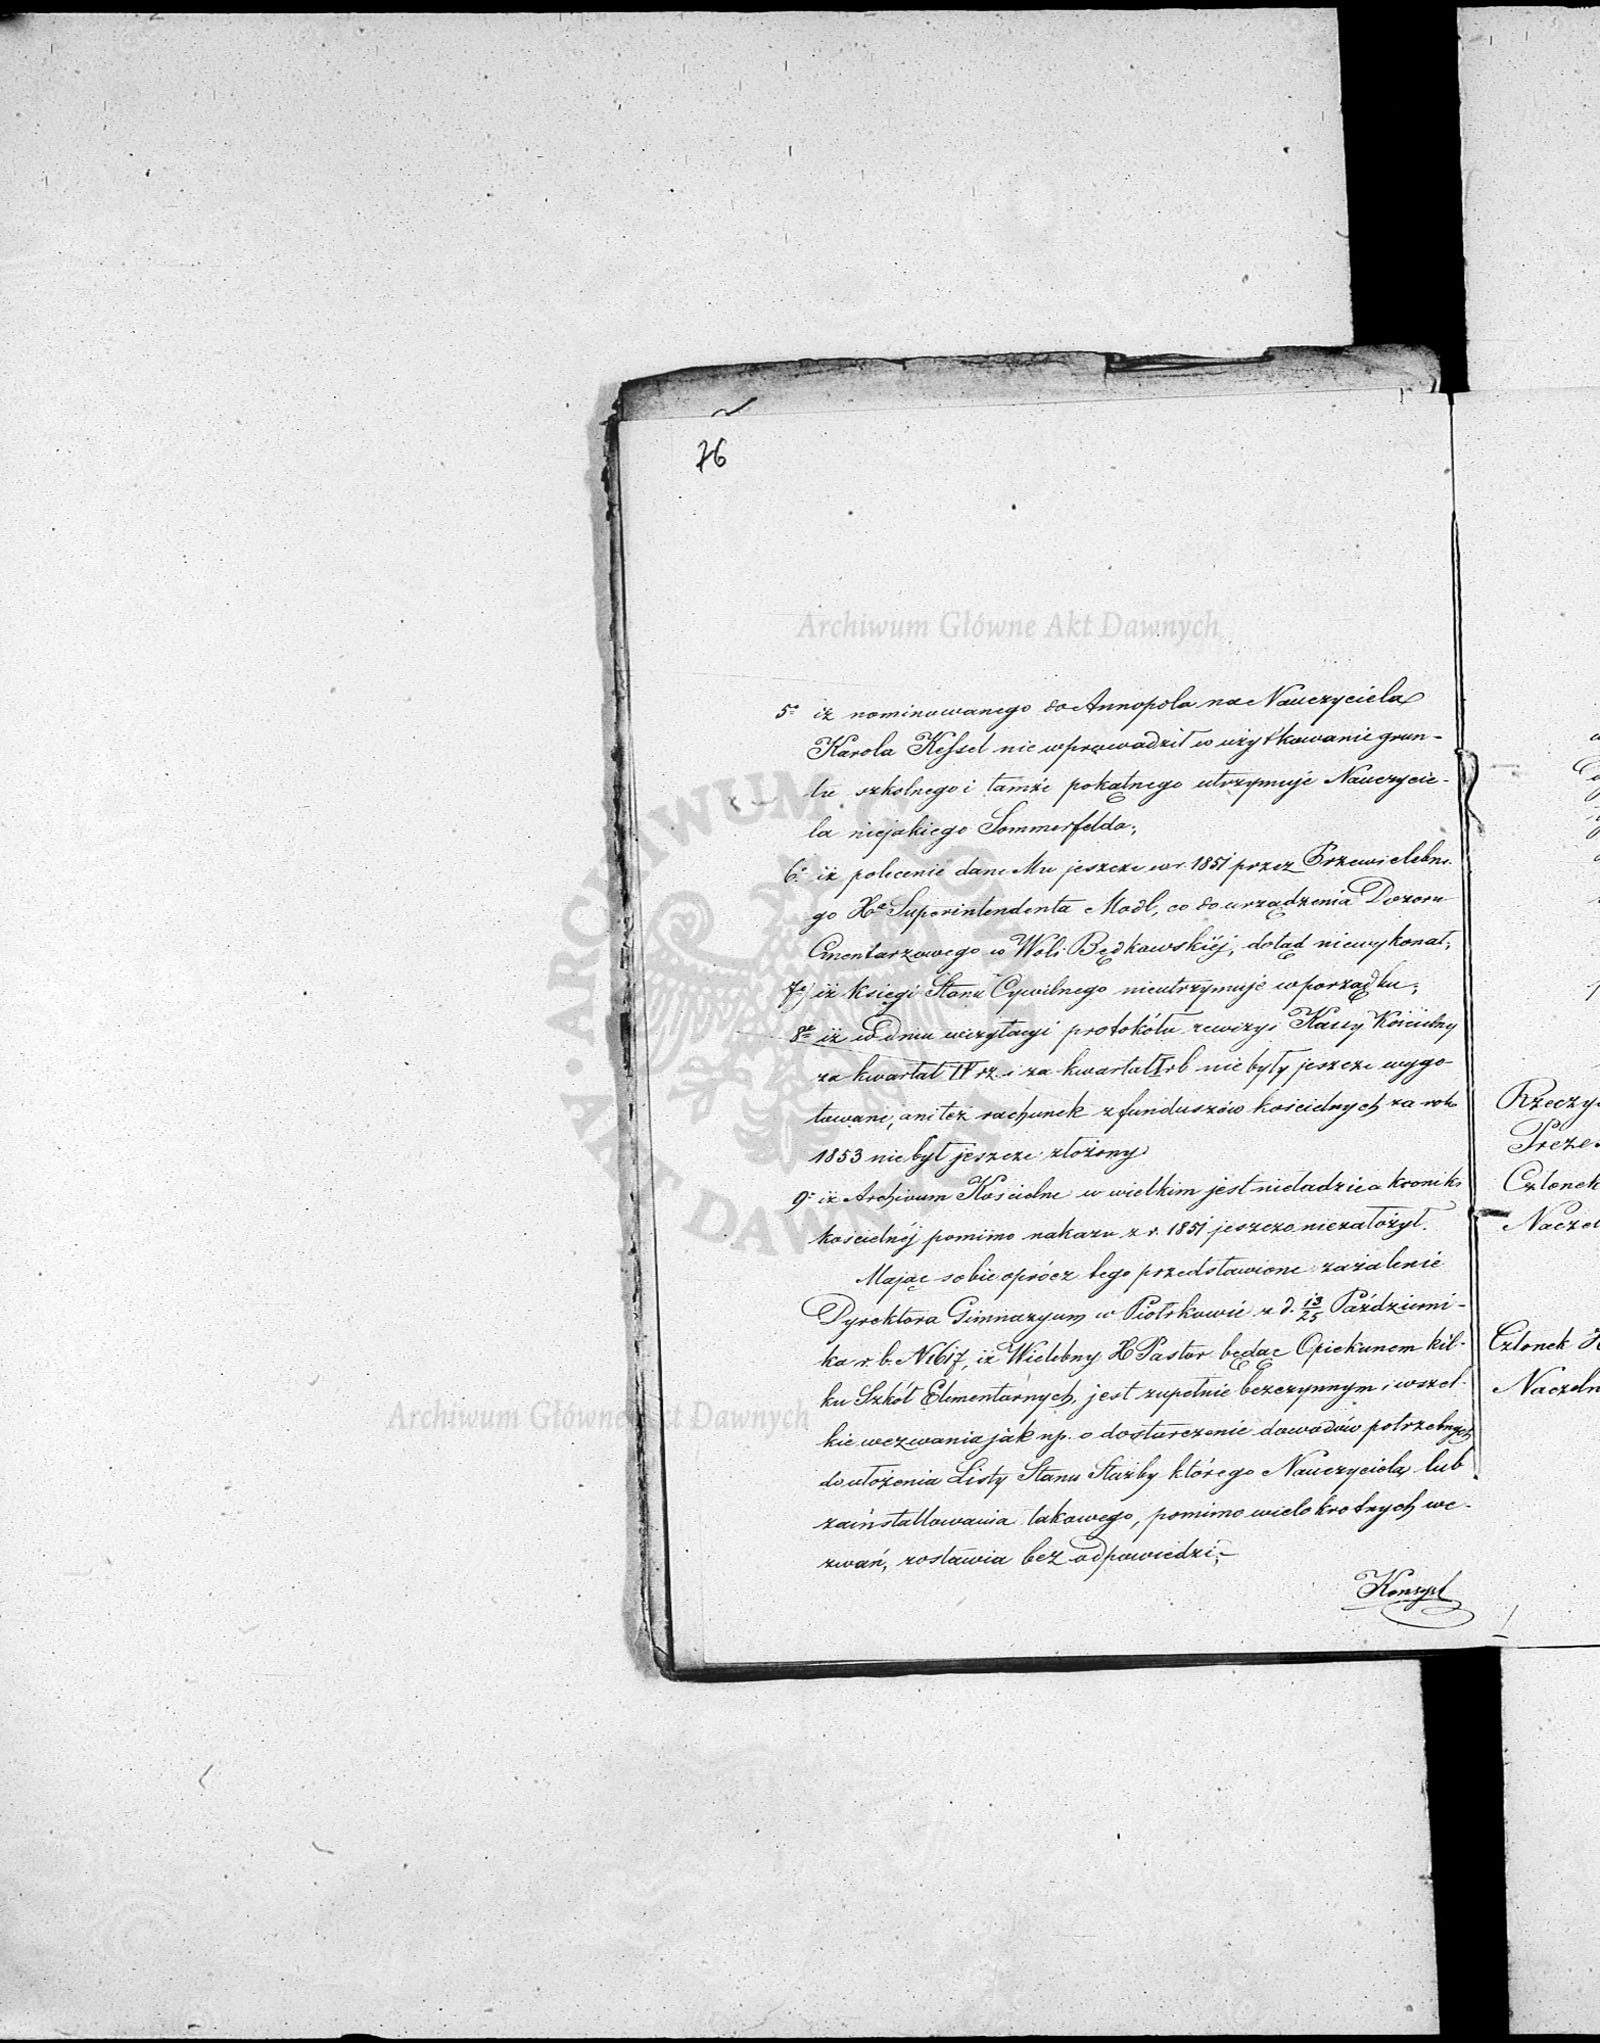 76
Archiwum Główne Akt Dawnych
5º iż nominowanego do Annopola na Nauczyciela
Karola Kessel nie wprowadził w użytkowanie grun-
tu szkolnego i tamże pokątnego utrzymuje Nauczycie-
la niejakiego Sommerfelda;
6º iż polecenie dane Mu jeszcze w r. 1851 przez Przewielebne-
go Xa Superintendenta Modl, co do urządzenia Dozoru
Cmentarzowego w Woli Będkowskiéj, dotąd niewykonał;
7e) iż Księgi Stanu Cywilnego nieutrzymuje w porządku;
8e iż w dniu wizytacyi protokółu rewizyi Kassy Kościelny
za kwartał IV rz. i za kwartał I rb nie były jeszcze wygo
towane, ani też rachunek z funduszów kościelnych za rok
1853 nie był jeszcze złożony
9º iż Archivum Kościelne w wielkim jest nieładzie a kroniki
kościelnéj pomimo nakazu z r. 1851 jeszcze niezałożył.
Mając sobie oprócz tego przedstawione zażalenie
Dyrektora Gimnazyum w Piotrkowie z d. 13/25 Październi-
ka r. b. N 1617, iż Wielebny X Pastor będąc Opiekunem kil-
ku Szkół Elementarnych, jest zupełnie bezczynnym i wszel-
kie wezwania jak np. o dostarczenie dowodów potrzebnych
do ułożenia Listy Stanu Służby którego Nauczyciela lub
zainstallowania takowego, pomimo wielokrotnych we-
zwań, zostawia bez odpowiedzi;-
Konsyst
Archiwum Główne Akt Dawnych
ARCHIWUM GŁÓWNE AKT DAWNYCH
Rzeczy
Preze
Członek
Naczel
Członek
Naczeln